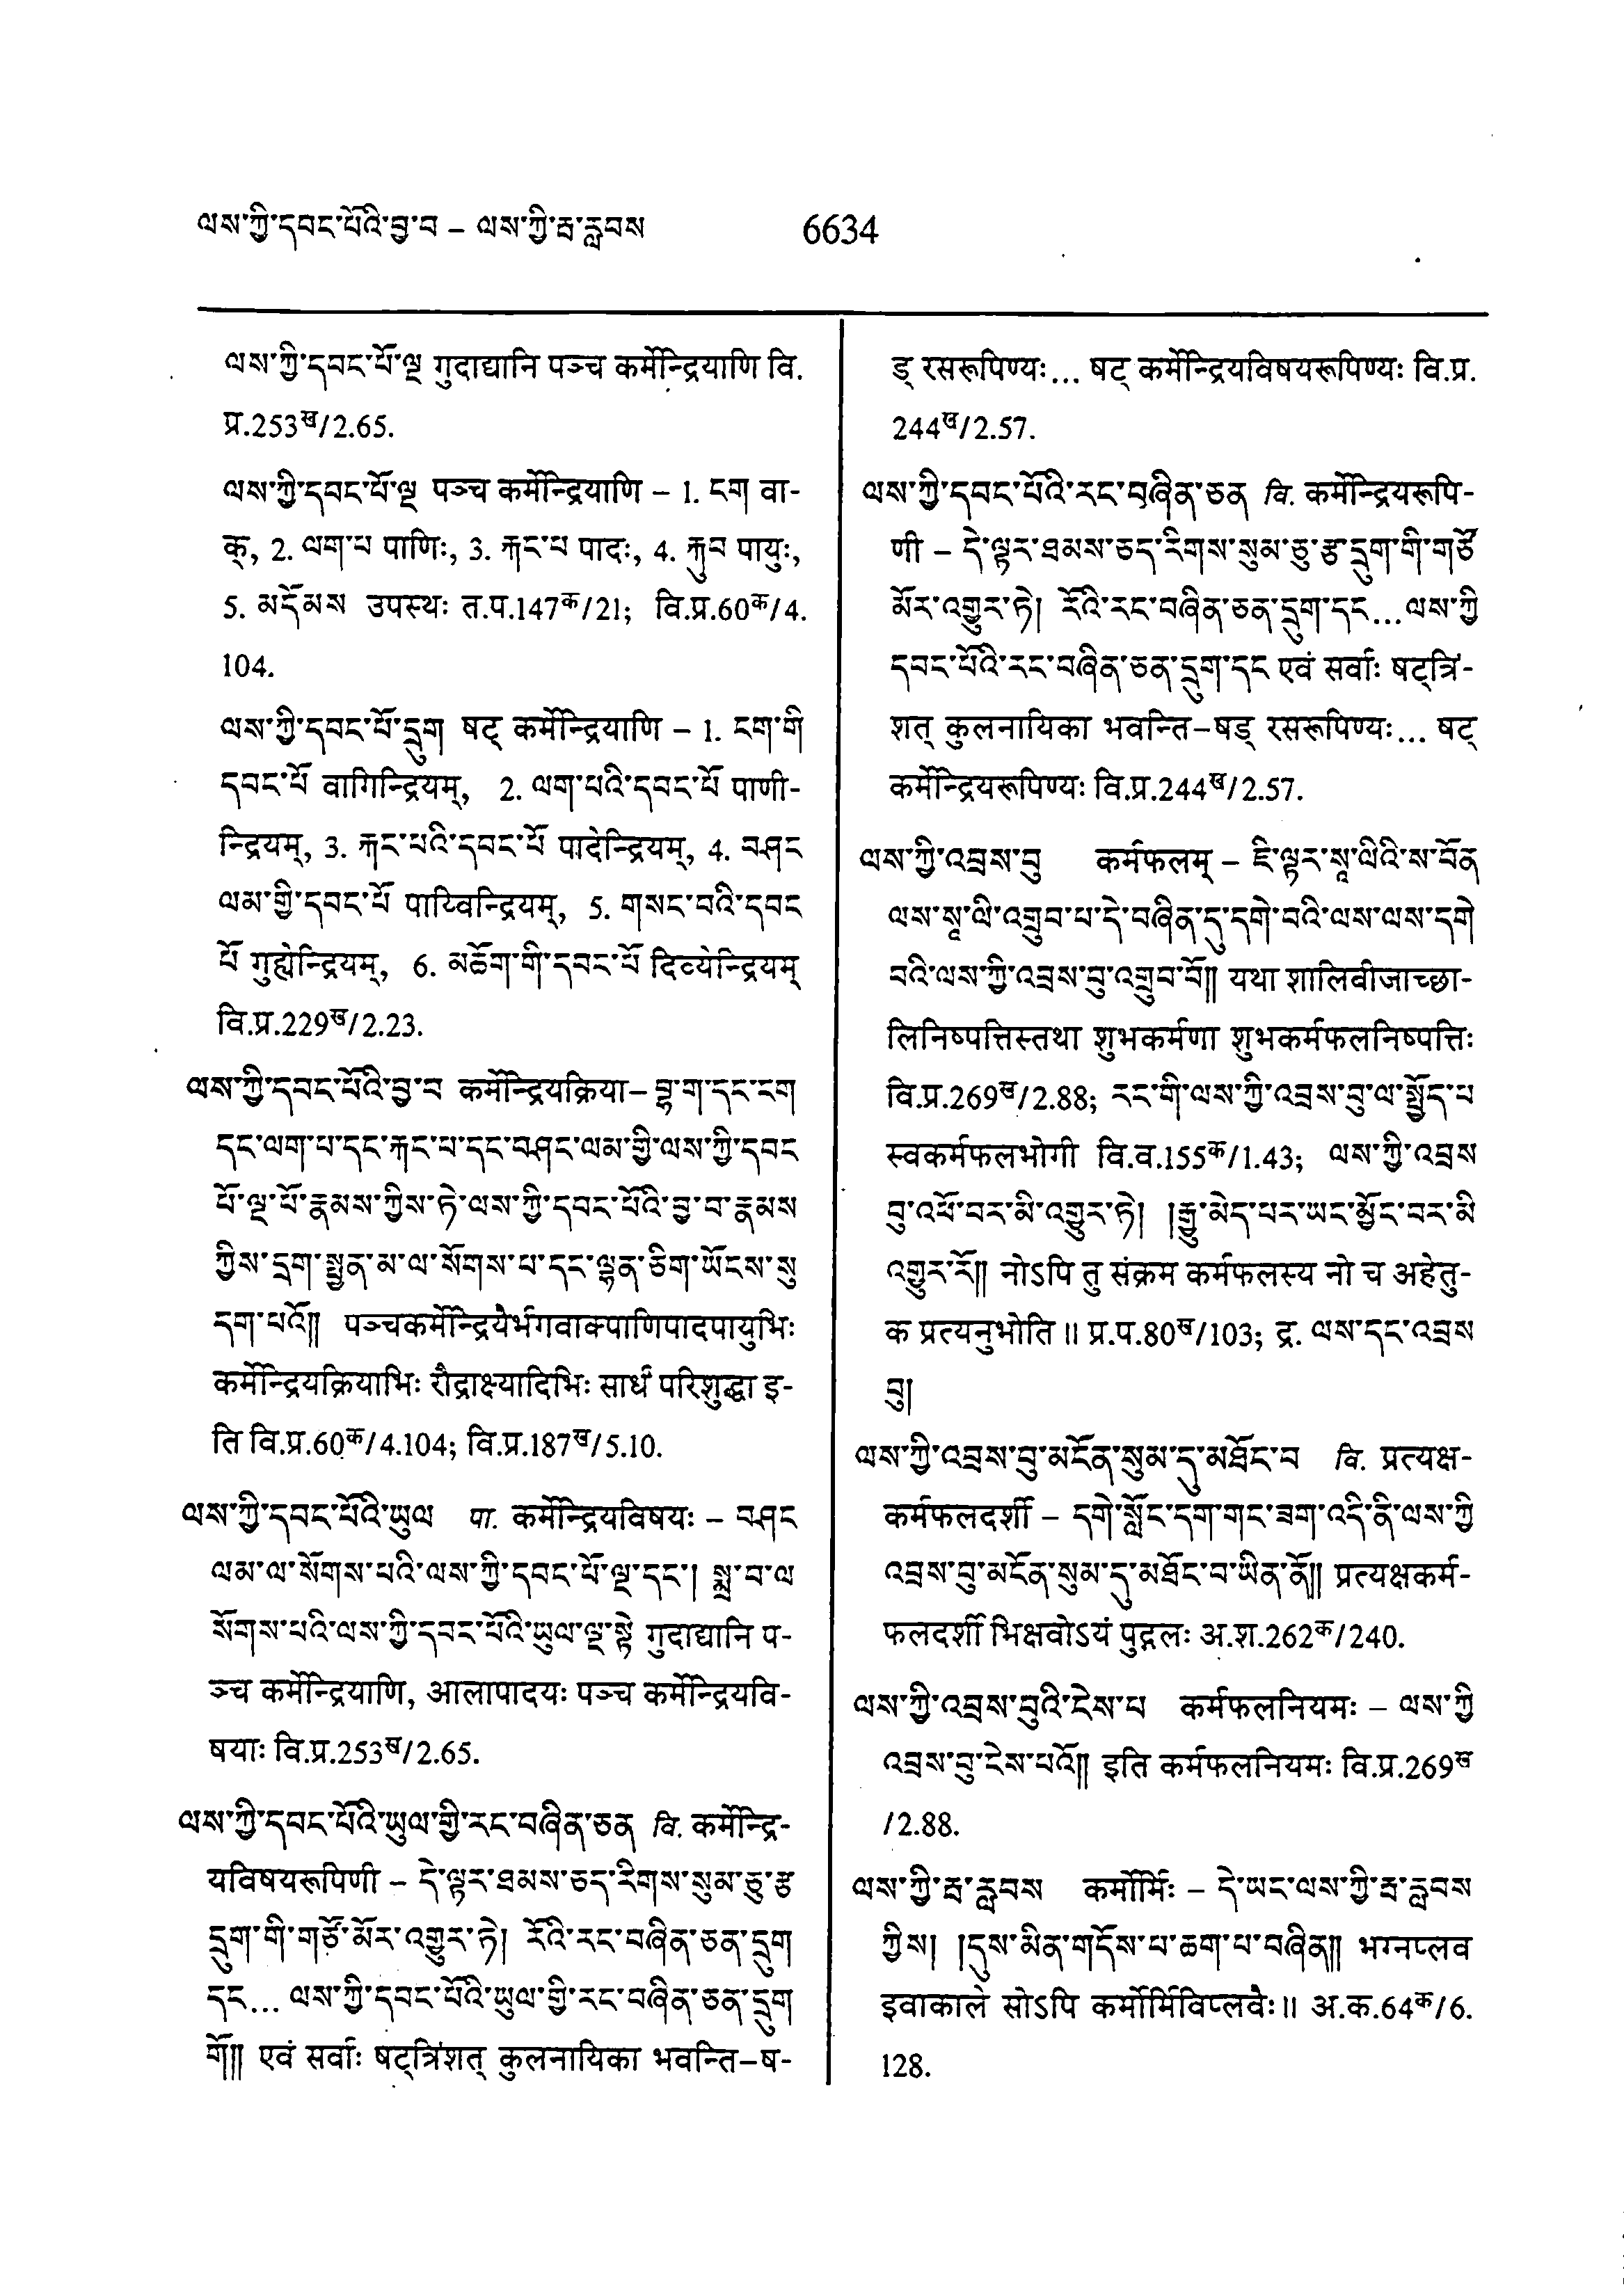 ལས་ཀྱི་དབང་པོའི་བྱ་བ – ལས་ཀྱི་རྦ་རླབས
6634
ལས་ཀྱི་དབང་པོ་ལྔ गुदाद्यानि पञ्च कर्मेन्द्रियाणि वि.
प्र.253ख/2.65.
ལས་ཀྱི་དབང་པོ་ལྔ पञ्च कर्मेन्द्रियाणि – 1. ངག वा-
क्, 2. ལག་པ पाणिः, 3. རྐང་པ पादः, 4. རྐུབ पायुः,
5. མདོམས उपस्थः त.प.147क/21; वि.प्र.60क/4.
104.
ལས་ཀྱི་དབང་པོ་དྲུག षट् कर्मेन्द्रियाणि – 1. ངག་གི
དབང་པོ वागिन्द्रियम्, 2. ལག་པའི་དབང་པོ पाणी-
न्द्रियम्, 3. རྐང་པའི་དབང་པོ पादेन्द्रियम्, 4. བཤང
ལམ་གྱི་དབང་པོ पाय्विन्द्रियम्, 5. གསང་བའི་དབང
པོ गुह्येन्द्रियम्, 6. མཆོག་གི་དབང་པོ दिव्येन्द्रियम्
वि.प्र.229ख/2.23.
ལས་ཀྱི་དབང་པོའི་བྱ་བ कर्मेन्द्रियक्रिया – བྷ་ག་དང་ངག
དང་ལག་པ་དང་རྐང་པ་དང་བཤང་ལམ་གྱི་ལས་ཀྱི་དབང
པོ་ལྔ་པོ་རྣམས་ཀྱིས་ཏེ་ལས་ཀྱི་དབང་པོའི་བྱ་བ་རྣམས
ཀྱིས་དྲག་སྤྱན་མ་ལ་སོགས་པ་དང་ལྷན་ཅིག་ཡོངས་སུ
དག་པའོ༎ पञ्चकर्मेन्द्रियैर्भगवाक्पाणिपादपायुभिः
कर्मेन्द्रियक्रियाभिः रौद्राक्ष्यादिभिः सार्धं परिशुद्धा इ-
ति वि.प्र.60क/4.104; वि.प्र.187ख/5.10.
ལས་ཀྱི་དབང་པོའི་ཡུལ पा. कर्मेन्द्रियविषयः – བཤང
ལམ་ལ་སོགས་པའི་ལས་ཀྱི་དབང་པོ་ལྔ་དང་། སྨྲ་བ་ལ
སོགས་པའི་ལས་ཀྱི་དབང་པོའི་ཡུལ་ལྔ་སྟེ गुदाद्यानि प-
ञ्च कर्मेन्द्रियाणि, आलापादयः पञ्च कर्मेन्द्रियवि-
षयाः वि.प्र.253ख/2.65.
ལས་ཀྱི་དབང་པོའི་ཡུལ་གྱི་རང་བཞིན་ཅན वि. कर्मेन्द्रि-
यविषयरूपिणी – དེ་ལྟར་ཐམས་ཅད་རིགས་སུམ་ཅུ་རྩ
དྲུག་གི་གཙོ་མོར་འགྱུར་ཏེ། རོའི་རང་བཞིན་ཅན་དྲུག
དང... ལས་ཀྱི་དབང་པོའི་ཡུལ་གྱི་རང་བཞིན་ཅན་དྲུག
གོ༎ एवं सर्वाः षट्त्रिंशत् कुलनायिका भवन्ति–ष-
ड् रसरूपिण्यः... षट् कर्मेन्द्रियविषयरूपिण्यः वि.प्र.
244ख/2.57.
ལས་ཀྱི་དབང་པོའི་རང་བཞིན་ཅན वि. कर्मेन्द्रियरूपि-
णी – དེ་ལྟར་ཐམས་ཅད་རིགས་སུམ་ཅུ་རྩ་དྲུག་གི་གཙོ
མོར་འགྱུར་ཏེ། རོའི་རང་བཞིན་ཅན་དྲུག་དང...ལས་ཀྱི
དབང་པོའི་རང་བཞིན་ཅན་དྲུག་དང एवं सर्वाः षट्त्रिं-
शत् कुलनायिका भवन्ति–षड् रसरूपिण्यः... षट्
कर्मेन्द्रियरूपिण्यः वि.प्र.244ख/2.57.
ལས་ཀྱི་འབྲས་བུ कर्मफलम् – ཇི་ལྟར་སཱ་ལིའི་ས་བོན
ལས་སཱ་ལི་འགྲུབ་པ་དེ་བཞིན་དུ་དགེ་བའི་ལས་ལས་དགེ
བའི་ལས་ཀྱི་འབྲས་བུ་འགྲུབ་བོ༎ यथा शालिबीजाच्छा-
लिनिष्पत्तिस्तथा शुभकर्मणा शुभकर्मफलनिष्पत्तिः
वि.प्र.269ख/2.88; རང་གི་ལས་ཀྱི་འབྲས་བུ་ལ་སྤྱོད་པ
स्वकर्मफलभोगी वि.व.155क/1.43; ལས་ཀྱི་འབྲས
བུ་འཕོ་བར་མི་འགྱུར་ཏེ། །རྒྱུ་མེད་པར་ཡང་མྱོང་བར་མི
འགྱུར་རོ༎ नोऽपि तु संक्रम कर्मफलस्य नो च अहेतु-
क प्रत्यनुभोति ॥ प्र.प.80ख/103; द्र. ལས་དང་འབྲས
བུ།
ལས་ཀྱི་འབྲས་བུ་མངོན་སུམ་དུ་མཐོང་བ वि. प्रत्यक्ष-
कर्मफलदर्शी – དགེ་སློང་དག་གང་ཟག་འདི་ནི་ལས་ཀྱི
འབྲས་བུ་མངོན་སུམ་དུ་མཐོང་བ་ཡིན་ནོ༎ प्रत्यक्षकर्म-
फलदर्शी भिक्षवोऽयं पुद्गलः अ.श.262क/240.
ལས་ཀྱི་འབྲས་བུའི་ངེས་པ कर्मफलनियमः – ལས་ཀྱི
འབྲས་བུ་ངེས་པའོ༎ इति कर्मफलनियमः वि.प्र.269ख
/2.88.
ལས་ཀྱི་རྦ་རླབས कर्मोर्मिः – དེ་ཡང་ལས་ཀྱི་རྦ་རླབས
ཀྱིས། །དུས་མིན་གདོས་པ་ཆག་པ་བཞིན༎ भग्नप्लव
इवाकाले सोऽपि कर्मोर्मिविप्लवैः॥ अ.क.64क/6.
128.